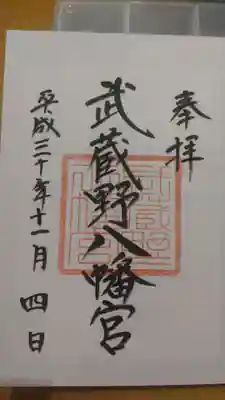 奉拝
武蔵野八幡宮
平成三十年十一月四日